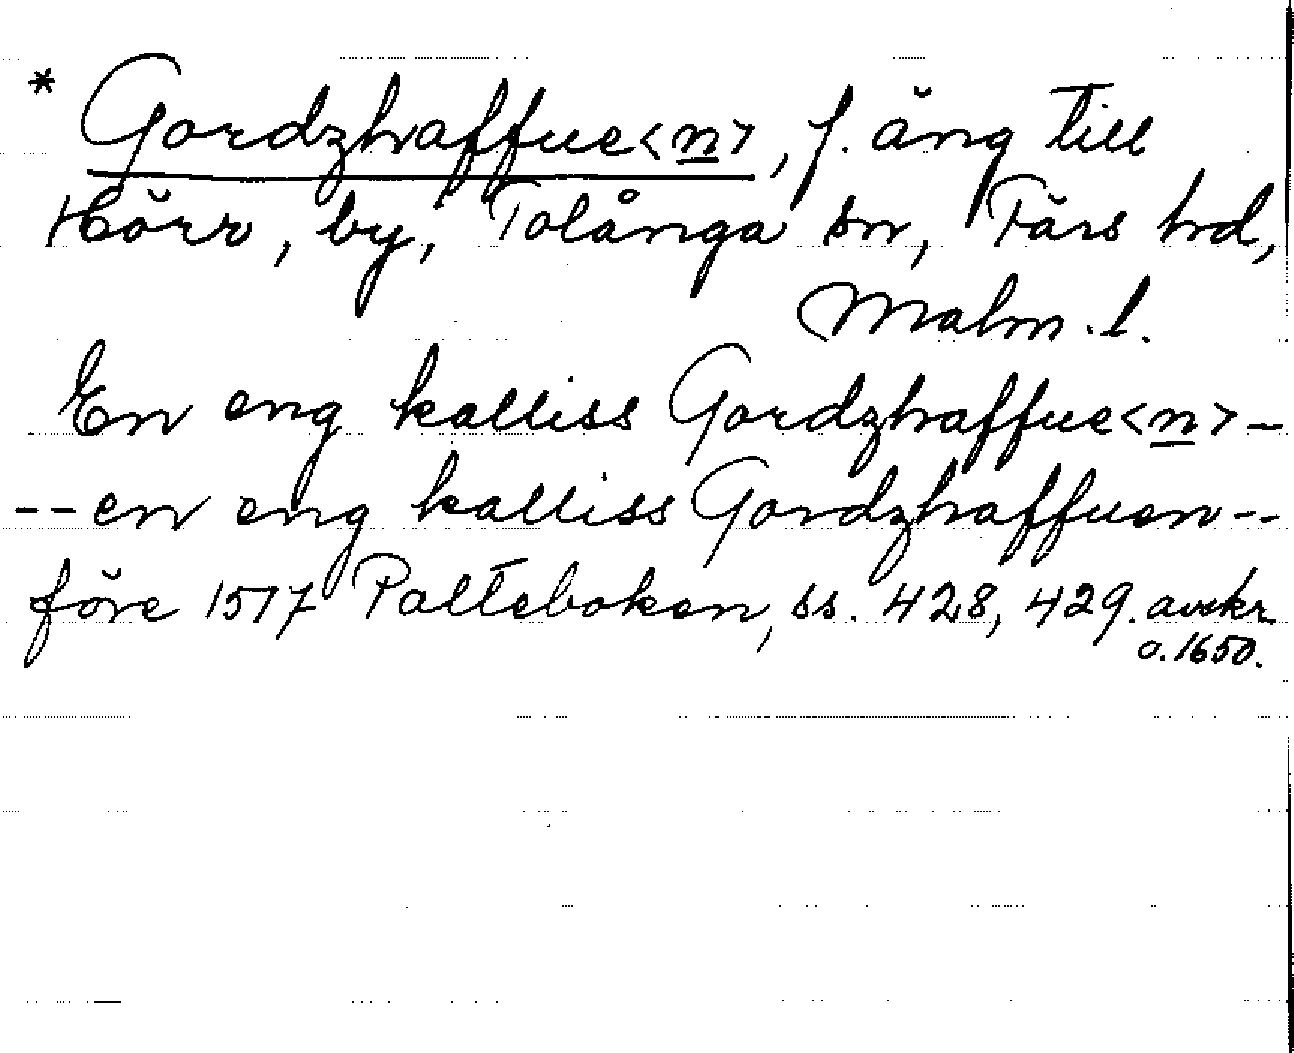 * Gordzhaffue<n>, f. äng till
Hörr, by, Tolånga sn, Färs hd,
Malm. l.
En eng kalliss Gordzhaffue<n> -
-- en eng kalliss Gordzhaffuen --
före 1517 Palteboken, ss. 428, 429. avskr.
o. 1650.